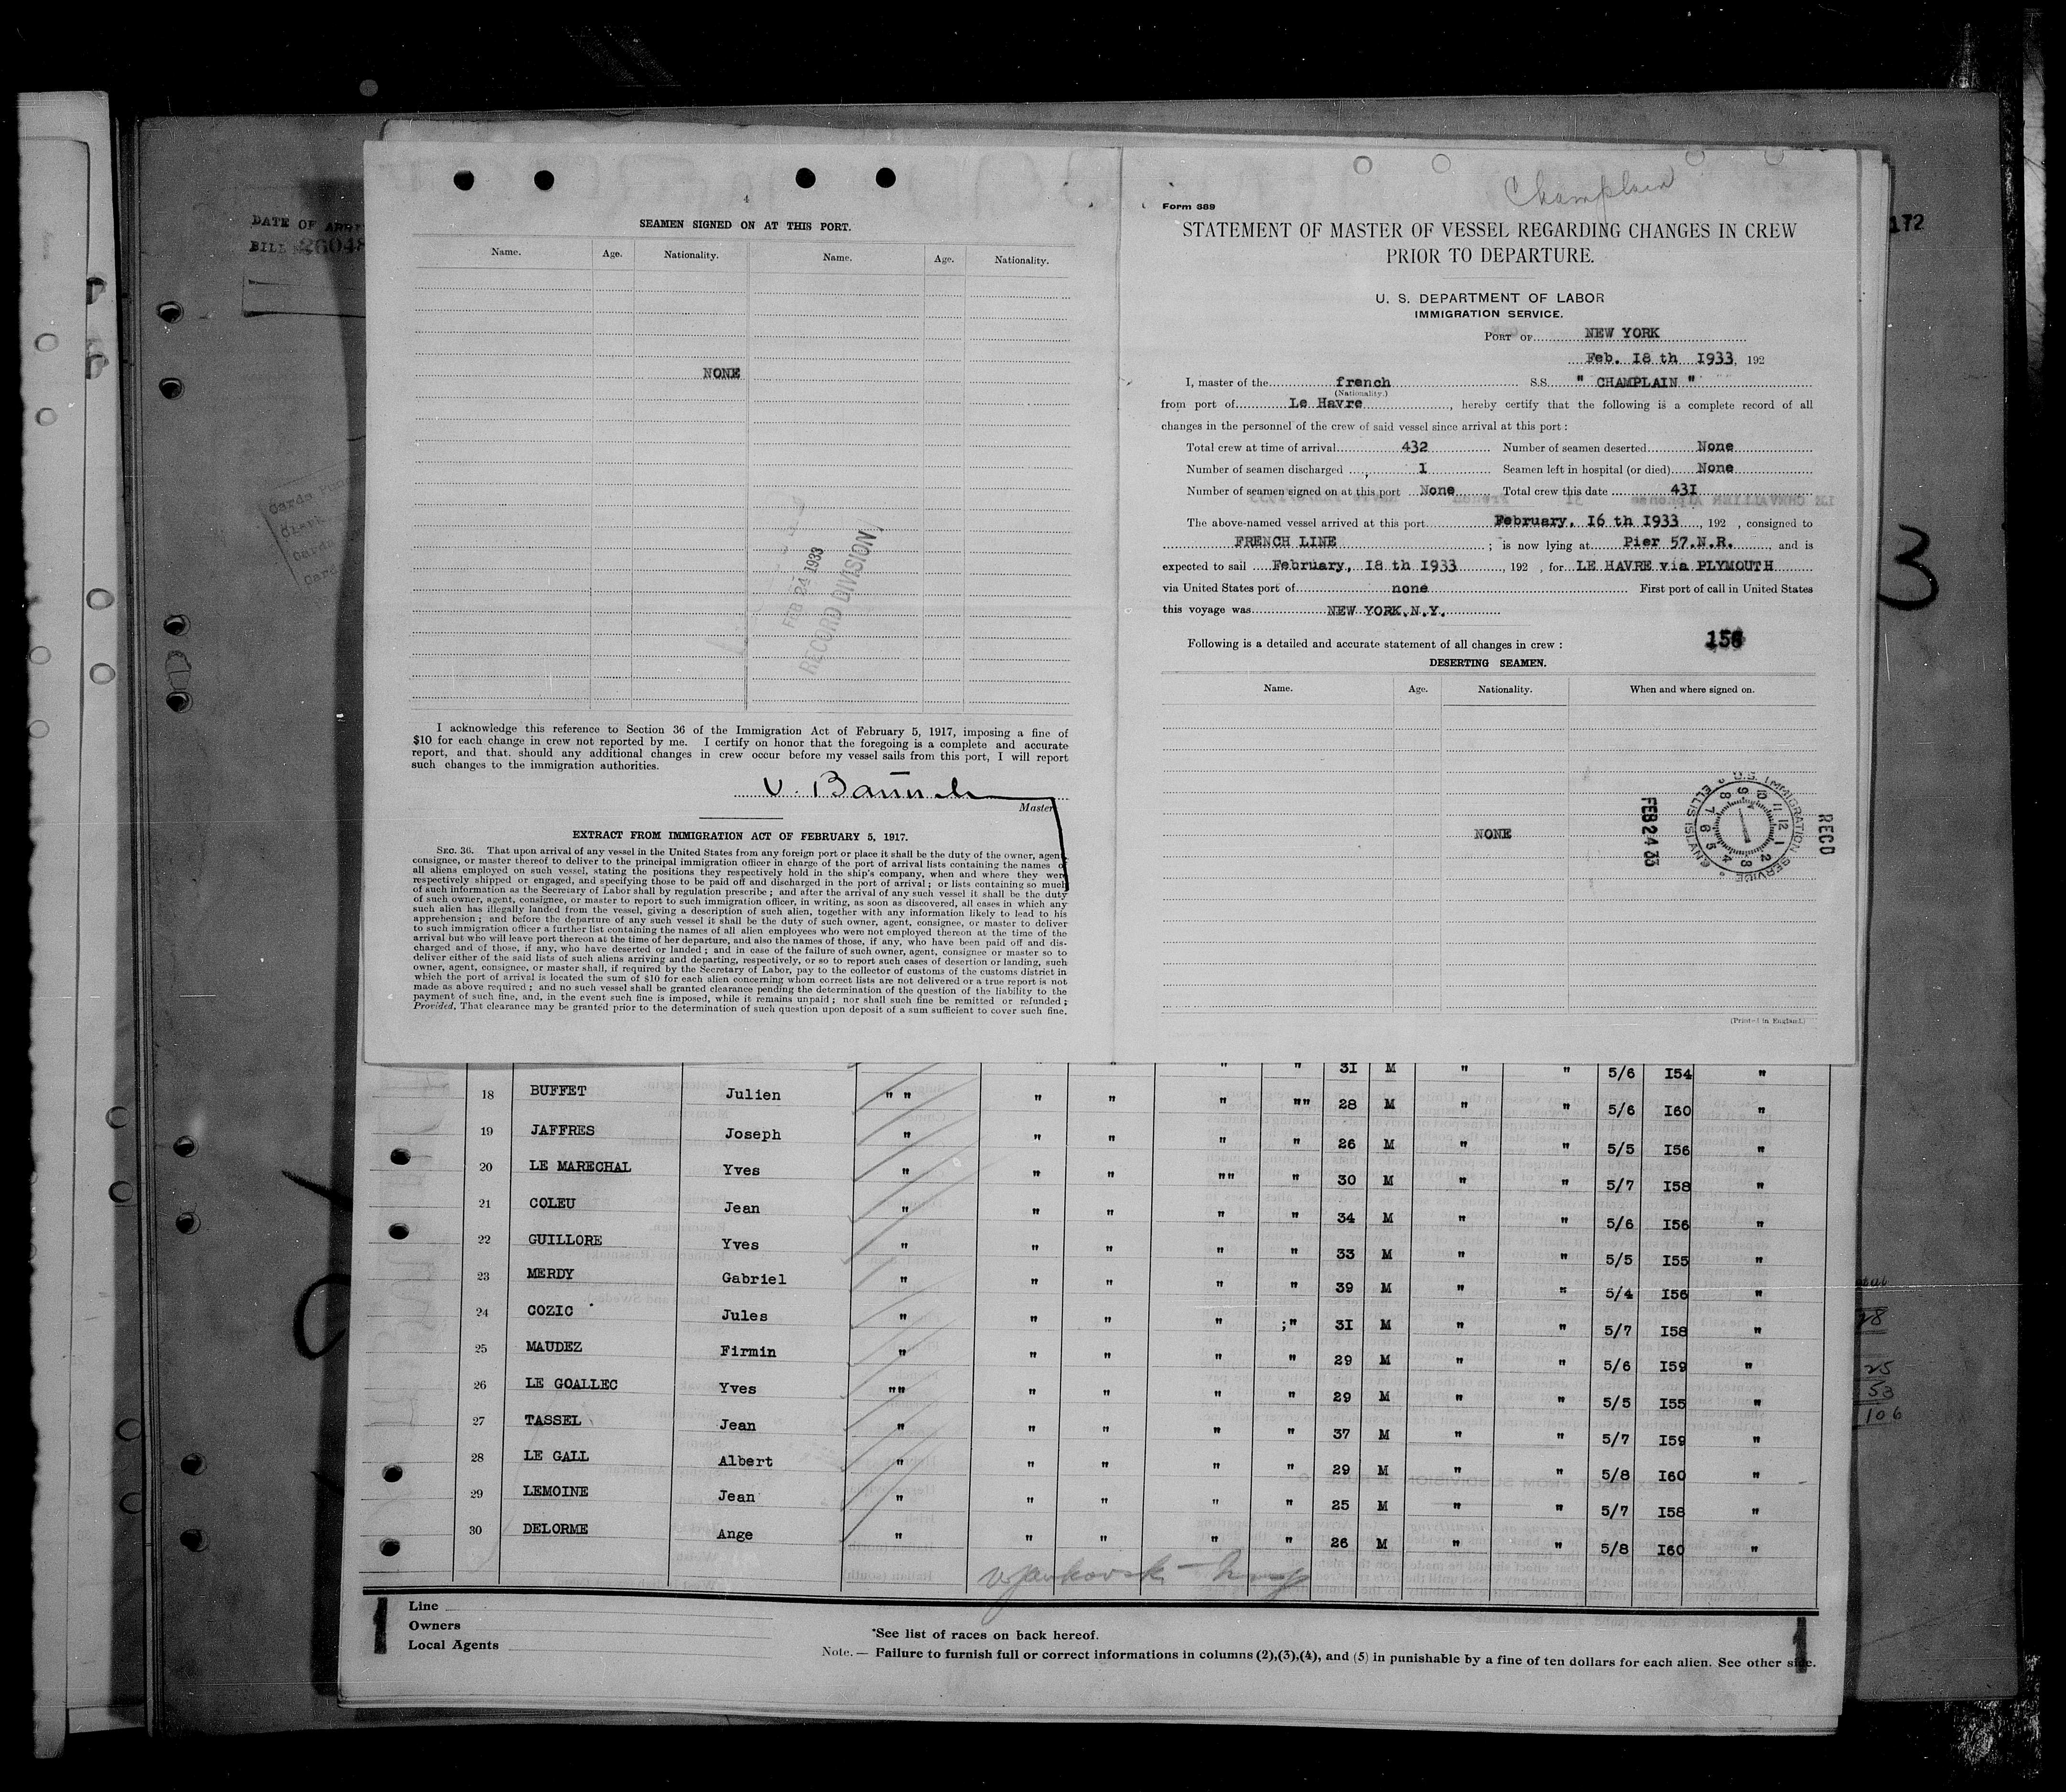 DATE OF ARRI
BILL
26048
172
4
SEAMEN SIGNED ON AT THIS PORT.
Name. Age. Nationality. Name. Age. Nationality.
NONE
FEB 24 1933
RECORD DIVISION
I acknowledge this reference to Section 36 of the Immigration Act of February 5, 1917, imposing a fine of
$10 for each change in crew not reported by me. I certify on honor that the foregoing is a complete and accurate
report, and that. should any additional changes in crew occur before my vessel sails from this port, I will report
such changes to the immigration authorities.
Master
EXTRACT FROM IMMIGRATION ACT OF FEBRUARY 5, 1917.
SEC. 36. That upon arrival of any vessel in the United States from any foreign port or place it shall be the duty of the owner, agent
consignee, or master thereof to deliver to the principal immigration officer in charge of the port of arrival lists containing the names of
all aliens employed on such vessel, stating the positions they respectively hold in the ship's company, when and where they were
respectively shipped or engaged, and specifying those to be paid off and discharged in the port of arrival ; or lists containing so much
of such information as the Secretary of Labor shall by regulation prescribe ; and after the arrival of any such vessel it shall be the duty
of such owner, agent, consignee, or master to report to such immigration officer, in writing, as soon as discovered, all cases in which any
such alien has illegally landed from the vessel, giving a description of such alien, together with any information likely to lead to his
apprehension ; and before the departure of any such vessel it shall be the duty of such owner, agent, consignee, or master to deliver
to such immigration officer a further list containing the names of all alien employees who were not employed thereon at the time of the
arrival but who will leave port thereon at the time of her departure, and also the names of those, if any, who have been paid off and dis-
charged and of those, if any, who have deserted or landed ; and in case of the failure of such owner, agent, consignee or master so to
deliver either of the said lists of such aliens arriving and departing, respectively, or so to report such cases of desertion or landing, such
owner, agent, consignee, or master shall, if required by the Secretary of Labor, pay to the collector of customs of the customs district in
which the port of arrival is located the sum of $10 for each alien concerning whom correct lists are not delivered or a true report is not
made as above required ; and no such vessel shall be granted clearance pending the determination of the question of the liability to the
payment of such fine, and, in the event such fine is imposed, while it remains unpaid ; nor shall such fine be remitted or refunded ;
Provided, That clearance may be granted prior to the determination of such question upon deposit of a sum sufficient to cover such fine.
Champlain
Form 689
STATEMENT OF MASTER OF VESSEL REGARDING CHANGES IN CREW
PRIOR TO DEPARTURE.
U. S. DEPARTMENT OF LABOR
IMMIGRATION SERVICE.
PORT OF NEW YORK
Feb. I8 th I933, 192
I, master of the french S.S. " CHAMPLAIN "
(Nationality.)
from port of Le Havre, hereby certify that the following is a complete record of all
changes in the personnel of the crew of said vessel since arrival at this port :
Total crew at time of arrival 432 Number of seamen deserted None
Number of seamen discharged I Seamen left in hospital (or died) None
Number of seamen signed on at this port None Total crew this date 43I
The above-named vessel arrived at this port February, I6 th I933, 192 , consigned to
FRENCH LINE ; is now lying at Pier 57.N.R., and is
expected to sail February, I8 th I933, 192 , for LE HAVRE via PLYMOUTH
via United States port of none First port of call in United States
this voyage was NEW YORK.N.Y.
Following is a detailed and accurate statement of all changes in crew :
DESERTING SEAMEN.
Name. Age. Nationality. When and where signed on.
NONE
U.S. IMMIGRATION SERVICE ELLIS ISLAND
FEB 24 33
RECD
(Printed in England.)
3
" " 3I M " " 5/6 I54 "
18 BUFFET Julien " " " " " "" 28 M " " 5/6 I60 "
19 JAFFRES Joseph " " " " " 26 M " " 5/5 I56 "
20 LE MARECHAL Yves " " " "" " 30 M " " 5/7 I58 "
21 COLEU Jean " " " " " 34 M " " 5/6 I56 "
22 GUILLORE Yves " " " " " 33 M " " 5/5 I55 "
23 MERDY Gabriel " " " " " 39 M " " 5/4 I56 "
24 COZIC Jules " " " " ;" 3I M " " 5/7 I58 "
25 MAUDEZ Firmin " " " " " 29 M " " 5/6 I59 "
26 LE GOALLEC Yves "" " " " " 29 M " " 5/5 I55 "
27 TASSEL Jean " " " " " 37 M " " 5/7 I59 "
28 LE GALL Albert " " " " " 29 M " " 5/8 I60 "
29 LEMOINE Jean " " " " " 25 M " " 5/7 I58 "
30 DELORME Ange " " " " " 26 M " " 5/8 I60 "
25
53
106
1
Line
Owners
Local Agents
*See list of races on back hereof.
Note. — Failure to furnish full or correct informations in columns (2),(3),(4), and (5) in punishable by a fine of ten dollars for each alien. See other side.
1